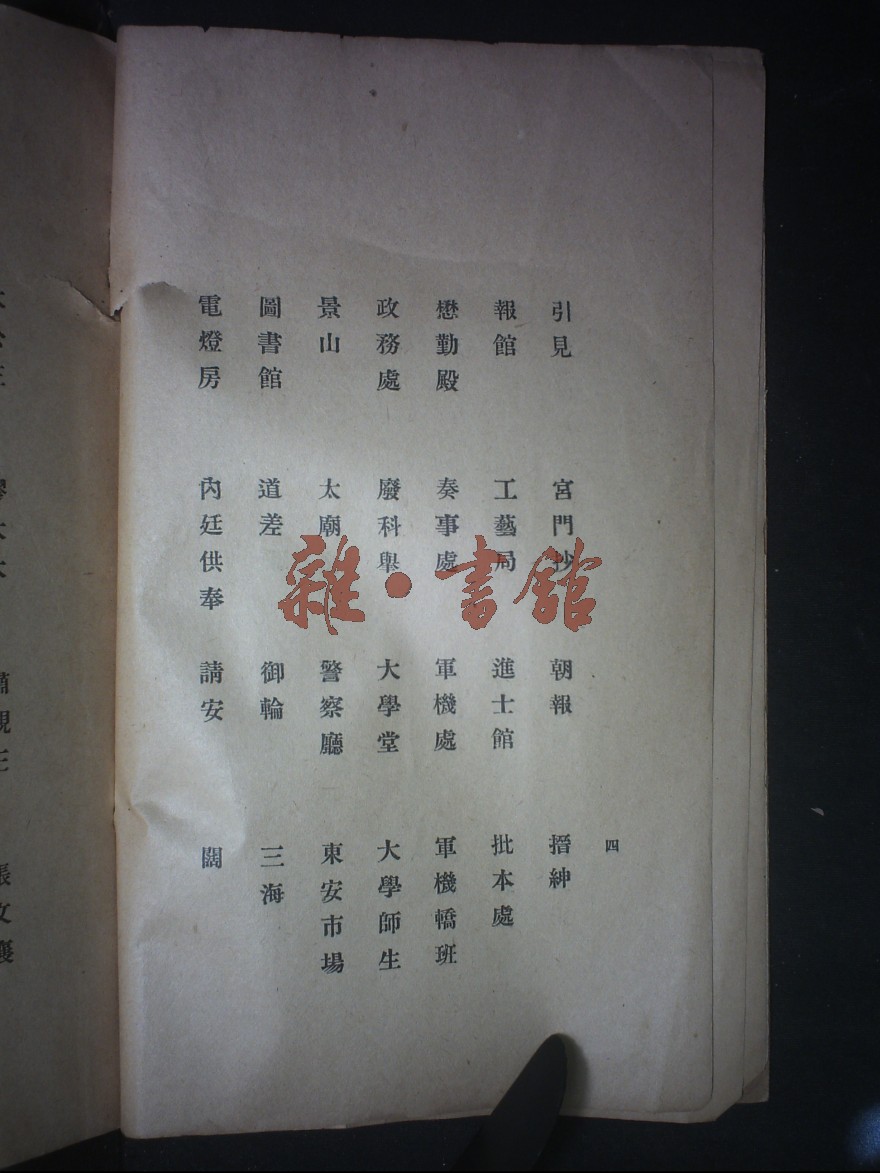 四
引見 宮門抄 朝報 搢紳
報館 工藝局 進士館 批本處
懋勤殿 奏事處 軍機處 軍機轎班
政務處 廢科舉 大學堂 大學師生
景山 太廟 警察廳 東安市場
圖書館 道差 御輪 三海
電燈房 內廷供奉 請安 闊
雜·書館